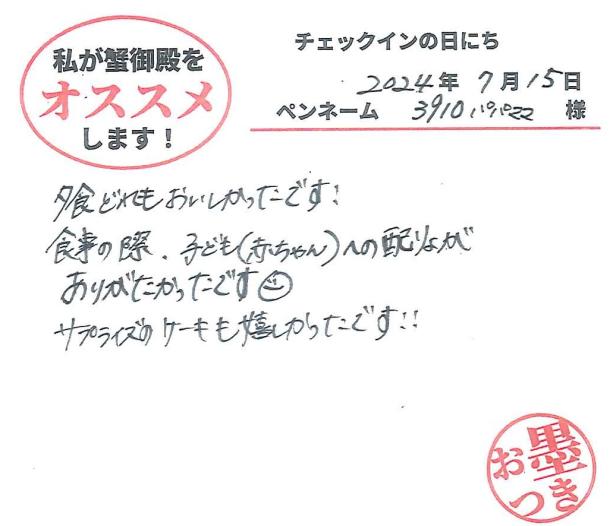 私が蟹御殿を
オススメ
します！
チェックインの日にち
2024年 7月15日
ペンネーム 3910パパママ 様
夕食どれもおいしかったです!
食事の際、子ども(赤ちゃん)への配りょが
ありがたかったです
サプライズのケーキも嬉しかったです!!
お墨
つき